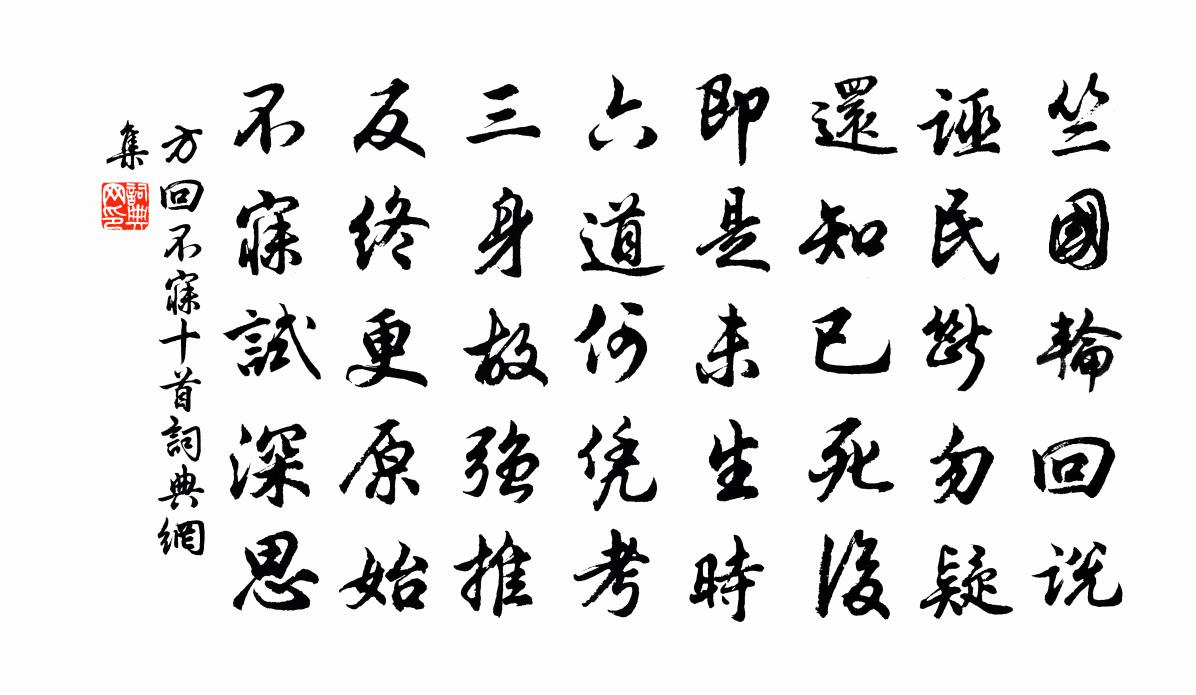 竺國輪回說
誣民斷勿疑
還知已死後
即是未生時
六道何凭考
三身故强推
反終更原始
不寐試深思
方回不寐十首詞典網
集
詞典網印